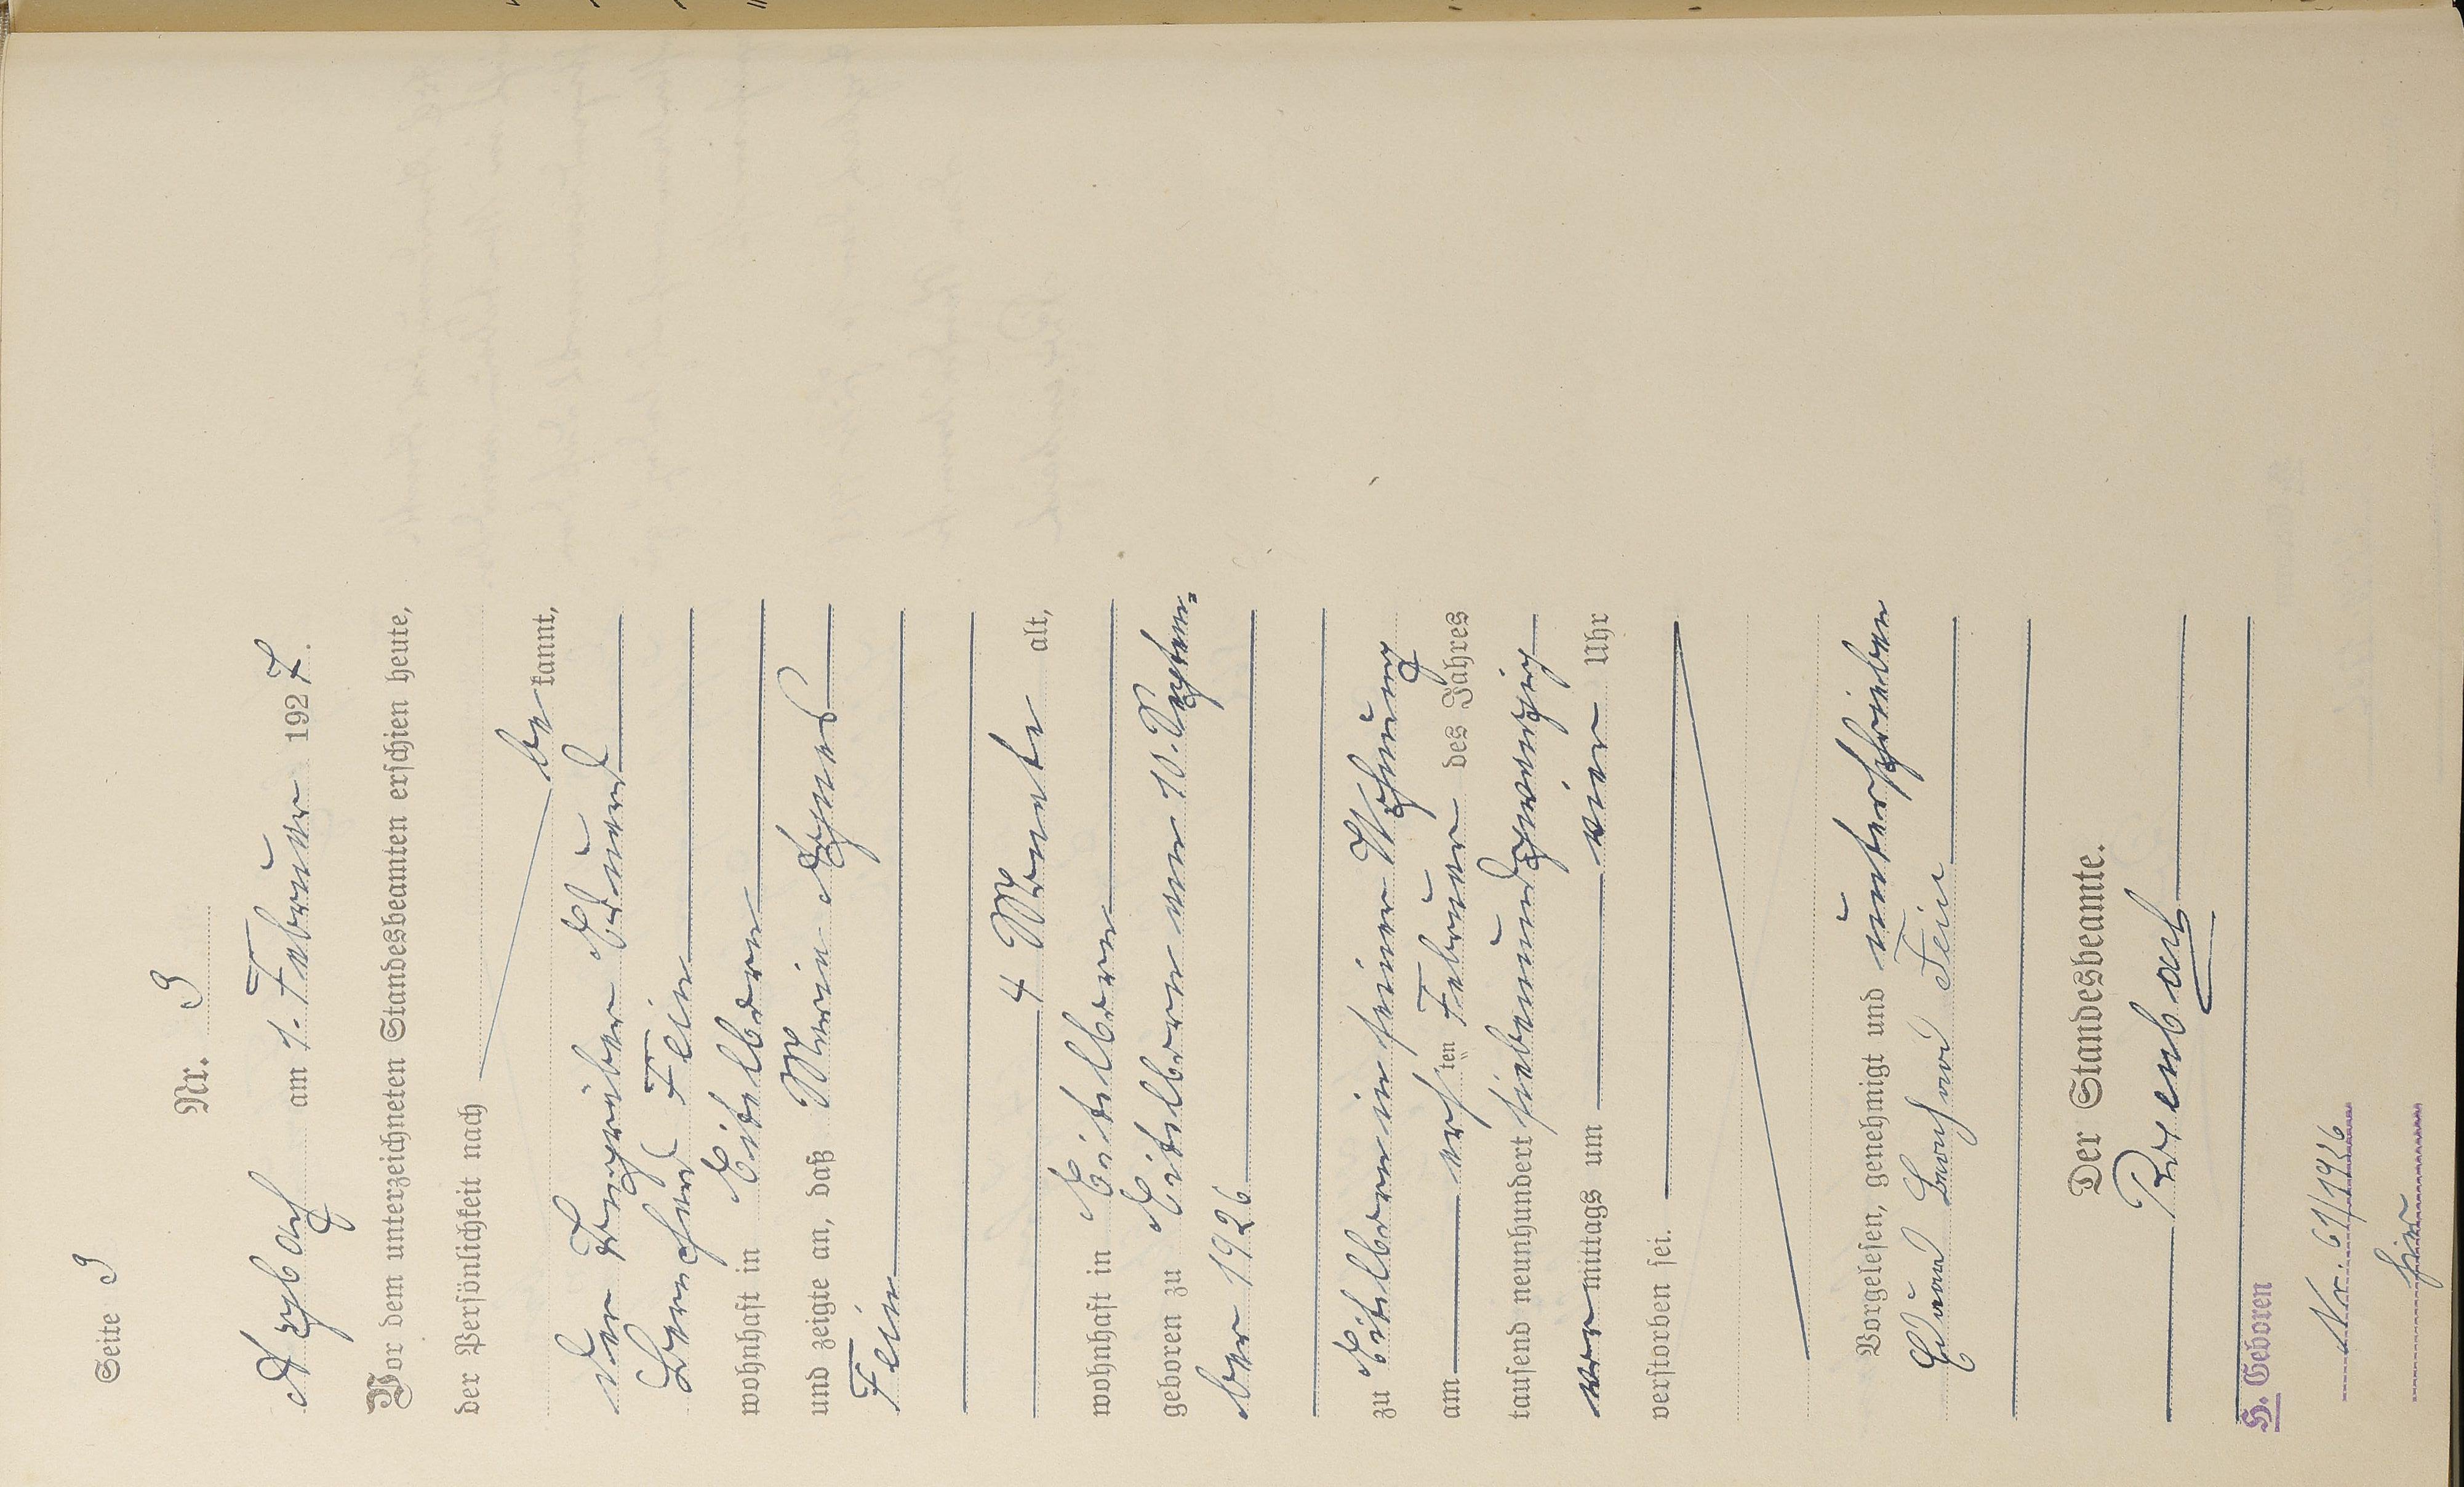 Seite 3
Nr. 3
Asbach am 1. Februar 1927.
Vor dem unterzeichneten Standesbeamten erschien heute,
der Persönlichkeit nach
be kannt,
der Eduard
Bernhard Fein
wohnhaft in Eitelborn
und zeigte an, daß Maria Agnes
Fein
4 Monate alt,
wohnhaft in Eitelborn
geboren zu Eitelborn am 10. Septem-
ber 1926
zu Eitelborn in seiner Wohnung
am ersten Februar des Jahres
tausend neunhundert siebenundzwanzig
vormittags um vier Uhr
verstorben sei.
Vorgelesen, genehmigt und unterschrieben
Eduard Bernhard Fein
Der Standesbeamte.
H. Geboren
Nr. 61/1926
hier